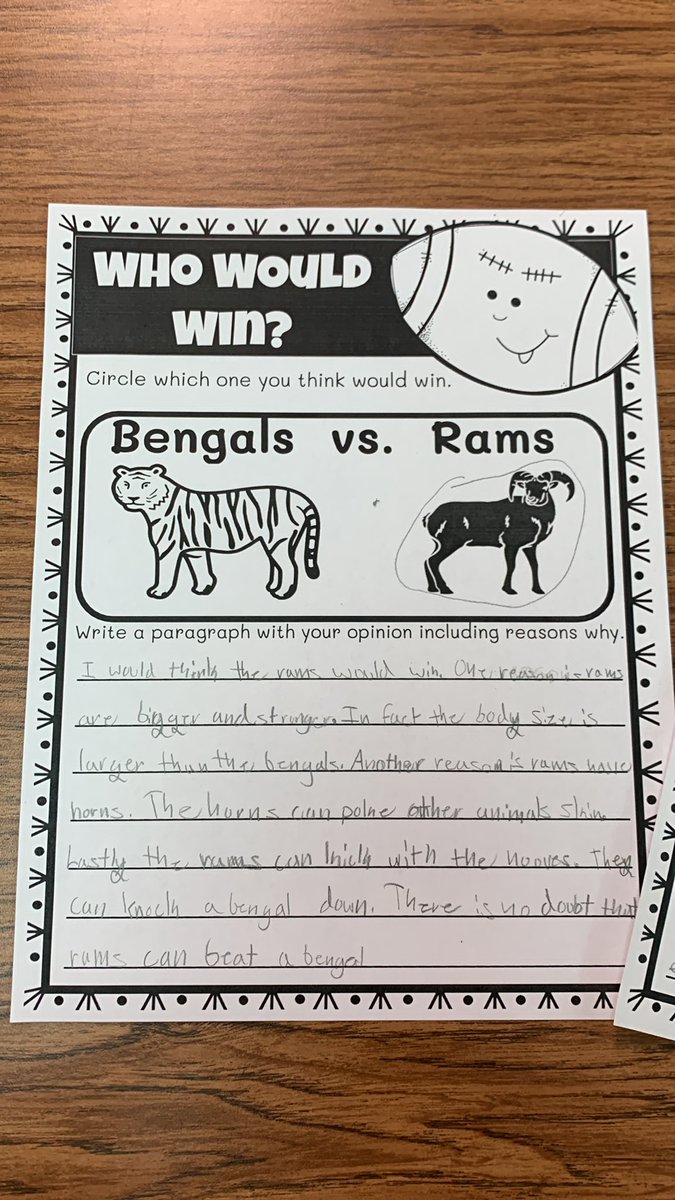 Who Would
Win?
Circle which one you think would win.
Bengals vs. Rams
Write a paragraph with your opinion including reasons why.
I would think the rams would win. One reason is rams
are bigger and stronger. In fact the body size is
larger than the bengals. Another reason is rams have
horns. The horns can poke other animals skin.
Lastly the rams can kick with the hooves. They
can knock a bengal down. There is no doubt that
rams can beat a bengal